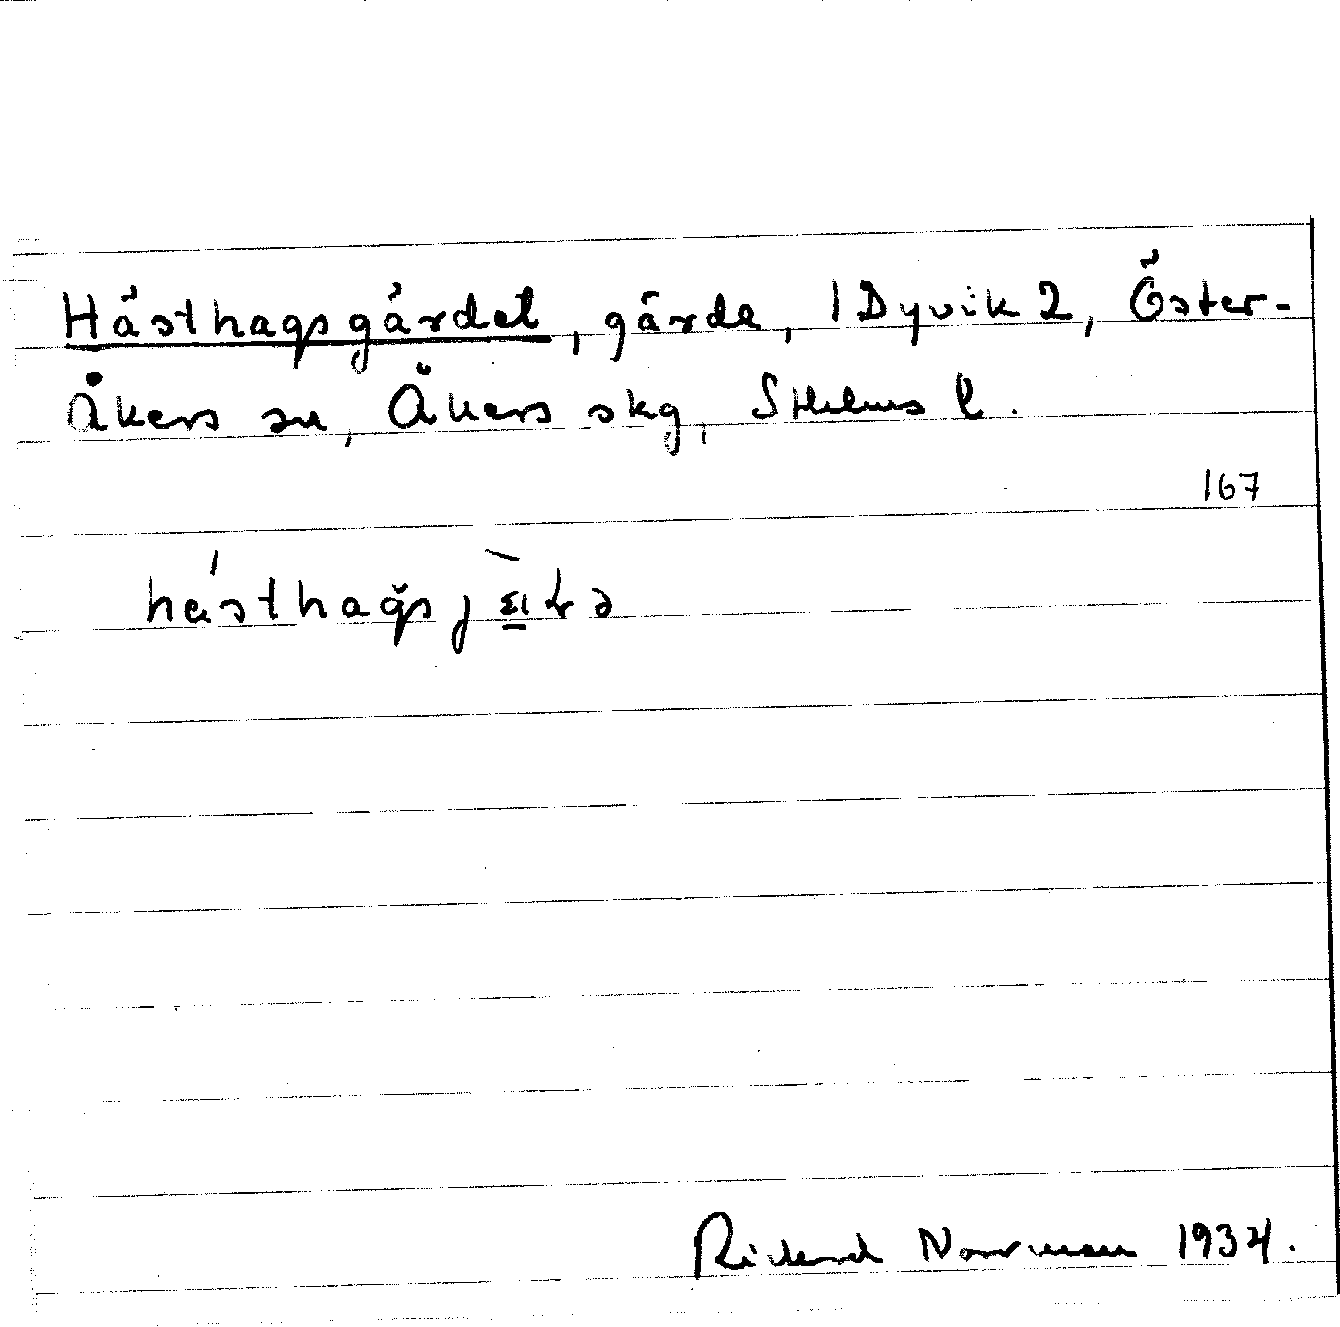 Hästhagsgärdet, gärde, 1 Dyvik 2, Öster-
Åkers sn, Åkers skg, Sthlms l.
167
Rickard Norrman 1934.